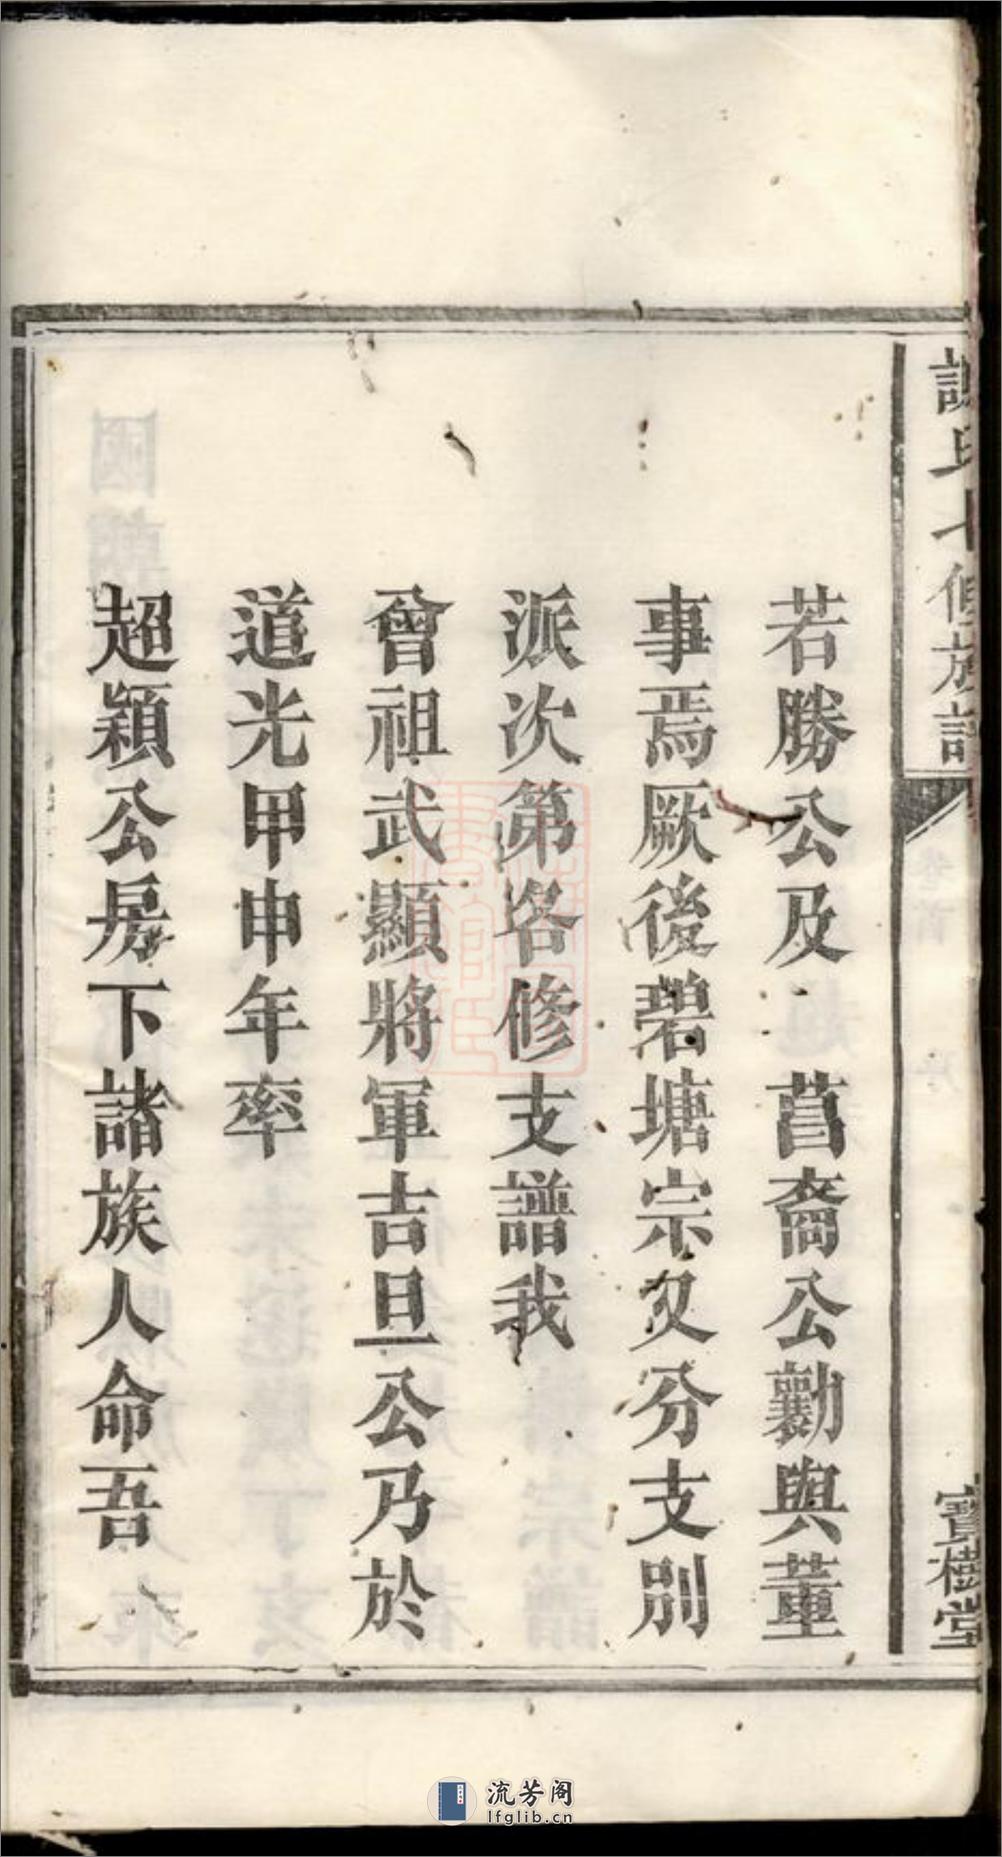 謝氏七修族譜
卷首
序
寶樹堂
若勝公及 菖裔公勷與董
事焉厥後碧塘宗久分支別
派次第咎修支譜我
曾祖武顯將軍吉旦公乃於
道光甲申年率
超穎公房下諸族人命吾
流芳阁
lfglib.cn